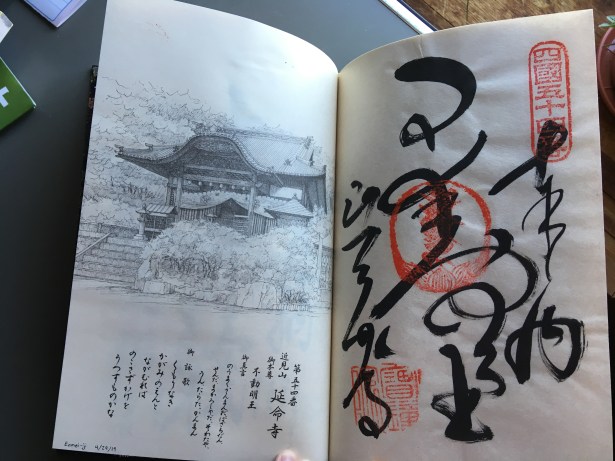 四國五十四番
奉納
不動明王
延命寺
第五十四番
近見山 延命寺
御本尊 不動明王
御真言
のうまくさんまんだばざらだん
せんだまかろしゃだそわたや
うんたらたかんまん
御詠歌
くもりなき
かがみのえんと
ながむれば
のこさずかげを
うつすものかな
Enmei-ji 4/29/19